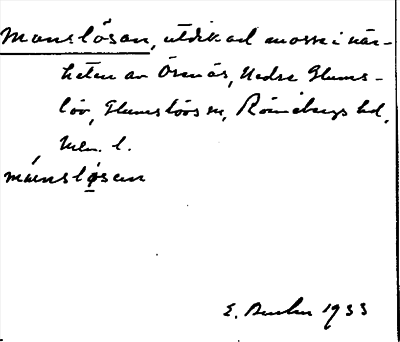 Manslösan, utdikad mosse i när-
heten av Örnäs, Nedre Glums-
löv, Glumslövs sn, Rönnebergs hd,
Mlm. l.
månslösen
E. 1933